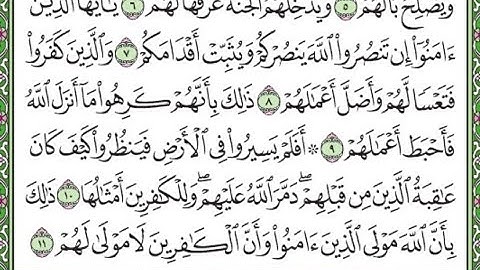 وَيُصْلِحُ بَالَهُمْ ٥ وَيُدْخِلُهُمُ الْجَنَّةَ عَرَّفَهَا لَهُمْ ٦ يَا أَيُّهَا الَّذِينَ
ءَامَنُوٓا۟ إِن تَنصُرُوا۟ ٱللَّهَ يَنصُرْكُمْ وَيُثَبِّتْ أَقْدَامَكُمْ ٧ وَٱلَّذِينَ كَفَرُوا۟
فَتَعْسًا لَّهُمْ وَأَضَلَّ أَعْمَٰلَهُمْ ٨ ذَٰلِكَ بِأَنَّهُمْ كَرِهُوا۟ مَآ أَنزَلَ ٱللَّهُ
فَأَحْبَطَ أَعْمَٰلَهُمْ ٩ ۞ أَفَلَمْ يَسِيرُوا۟ فِى ٱلْأَرْضِ فَيَنظُرُوا۟ كَيْفَ كَانَ
عَٰقِبَةُ ٱلَّذِينَ مِن قَبْلِهِمْ ۖ دَمَّرَ ٱللَّهُ عَلَيْهِمْ ۖ وَلِلْكَٰفِرِينَ أَمْثَٰلُهَا ١٠ ذَٰلِكَ
بِأَنَّ ٱللَّهَ مَوْلَى ٱلَّذِينَ ءَامَنُوا۟ وَأَنَّ ٱلْكَٰفِرِينَ لَا مَوْلَىٰ لَهُمْ ١١